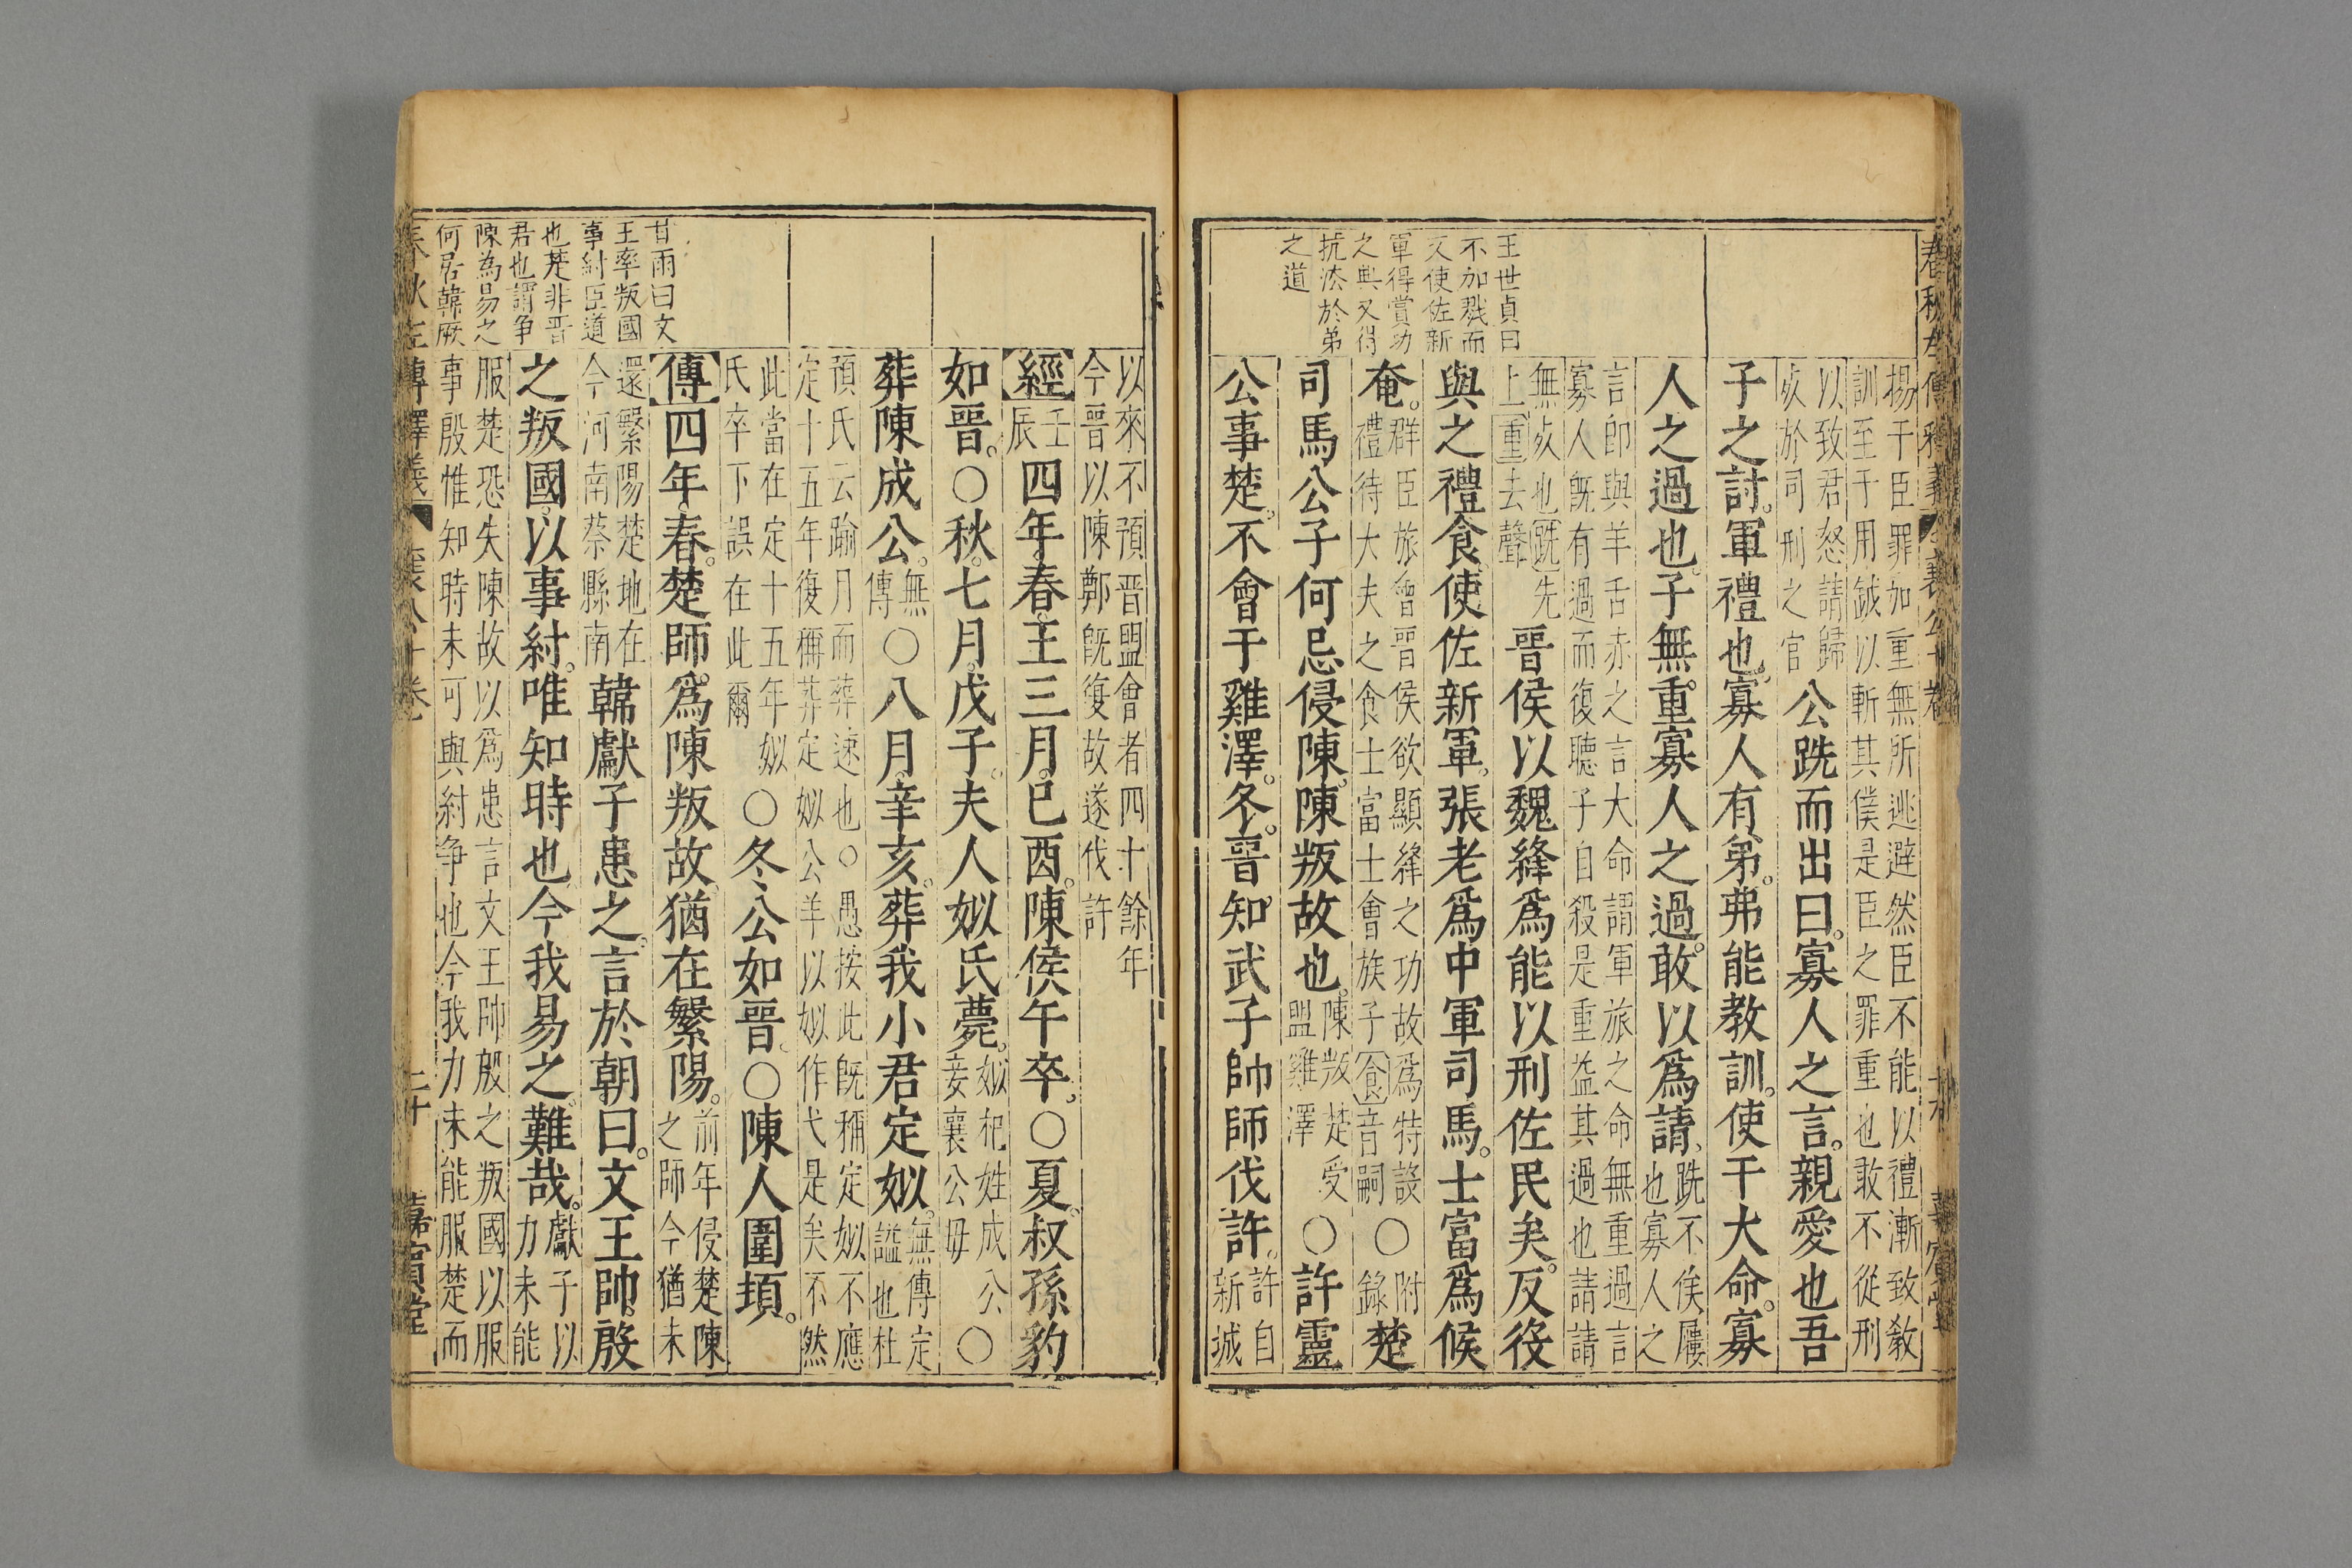 春秋左傳釋義 襄公十卷 十九 嘉賓堂
王世貞曰
不加戮而
又使佐新
軍得賞功
之典又得
抗法於弟
之道
揚干臣罪加重無所逃避然臣不能以禮漸致敎
訓至于用鉞以斬其僕是臣之罪重也敢不從刑
以致君怒請歸
死於司刑之官
公跣而出曰。寡人之言。親愛也吾
子之討。軍禮也。寡人有弟。弗能教訓。使干大命。寡
人之過也。子無重寡人之過。敢以爲請、
跣不俟屨
也寡人之
言卽與羊舌赤之言大命謂軍旅之命無重過言
寡人旣有過而復聽子自殺是重益其過也請請
無死也跣先
上重去聲
晉侯以魏絳爲能以刑佐民矣。反役
與之禮食。使佐新軍。張老爲中軍司馬。士富爲候
奄。
群臣旅會晉侯欲顯絳之功故爲特設
禮待大夫之食士富士會族子食音嗣
○
附
錄
楚
司馬公子何忌侵陳。陳叛故也。
陳叛楚受
盟雞澤
○許靈
公事楚。不會于雞澤。冬。晉知武子帥師伐許。
許自
新城
以來不預晉盟會者四十餘年
今晉以陳鄭旣復故遂伐許
經
壬
辰
四年。春。王三月。已酉。陳侯午卒。○夏。叔孫豹
如晉。○秋。七月。戊子。夫人姒氏薨。
姒杞姓成公
妾襄公毋
○
葬陳成公。
無
傳
○八月。辛亥。葬我小君定姒。
無傳定
謚也杜
預氏云踰月而葬速也○愚按此旣稱定姒不應
定十五年復稱葬定姒公羊以姒作弋是矣不然
此當在定十五年姒
氏卒下誤在此爾
○冬、公如晉。○陳人圍頓。
傳四年。春。楚師。爲陳叛故。猶在繁陽。
前年侵楚陳
之師今猶未
還繁陽楚地在
今河南蔡縣南
韓獻子患之。言於朝曰。文王帥殷
之叛國。以事紂。唯知時也。今我易之。難哉。
獻子以
力未能
服楚恐失陳故以爲患言文王帥殷之叛國以服
事殷惟知時未可與紂争也今我力未能服楚而
甘雨曰文
王率叛國
事紂臣道
也楚非晉
君也謂争
陳為易之
何居韓厥
春秋左傳釋義 襄公十卷 二十 嘉賓堂